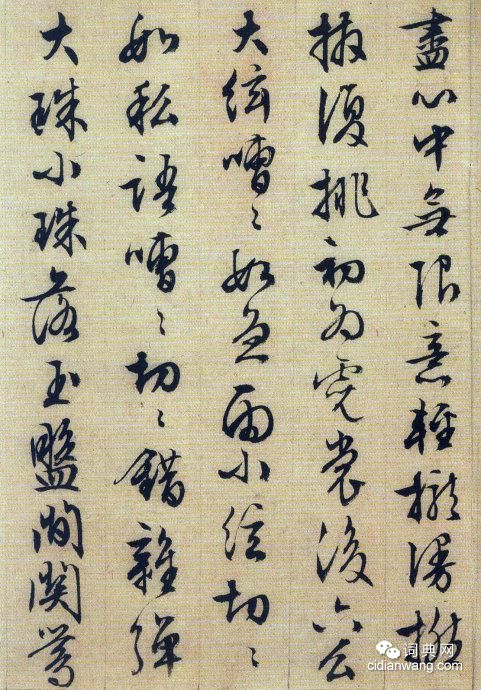 盡心中無限意輕攏漫撚
抹復挑初為霓裳後六幺
大絃嘈〻如急雨小絃切〻
如私語嘈〻切〻錯雜彈
大珠小珠落玉盤間関鶯
词典网
cidianwang.com